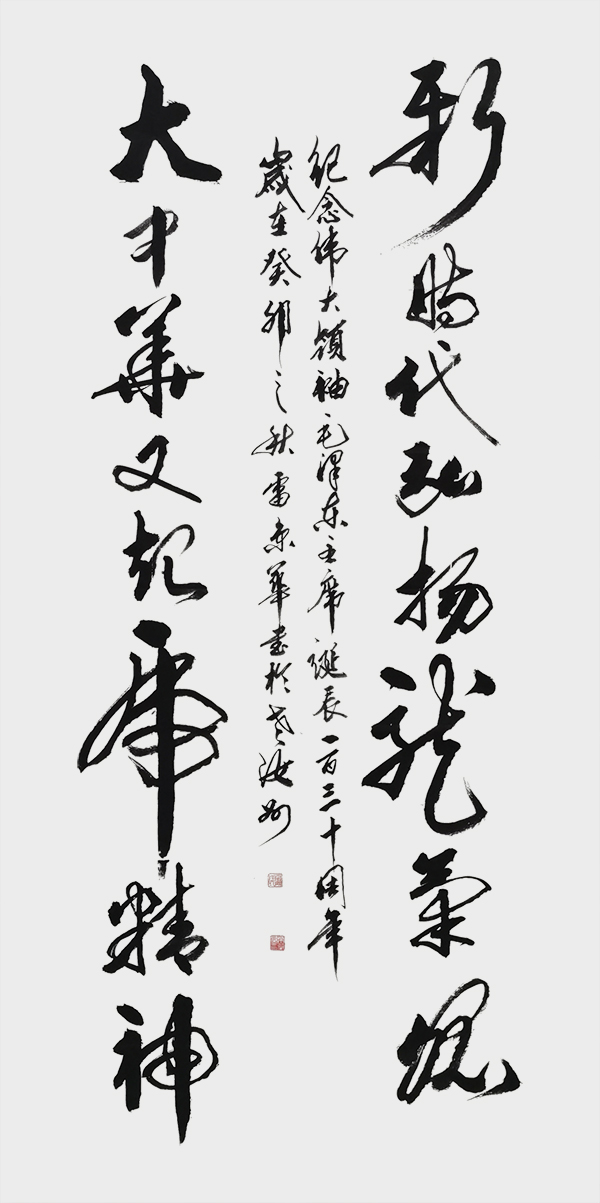 新時代弘揚龍氣魄
紀念偉大領袖毛澤東主席誕辰一百三十周年
歲在癸卯之秋雷京華書於汝州
大中華又起虎精神